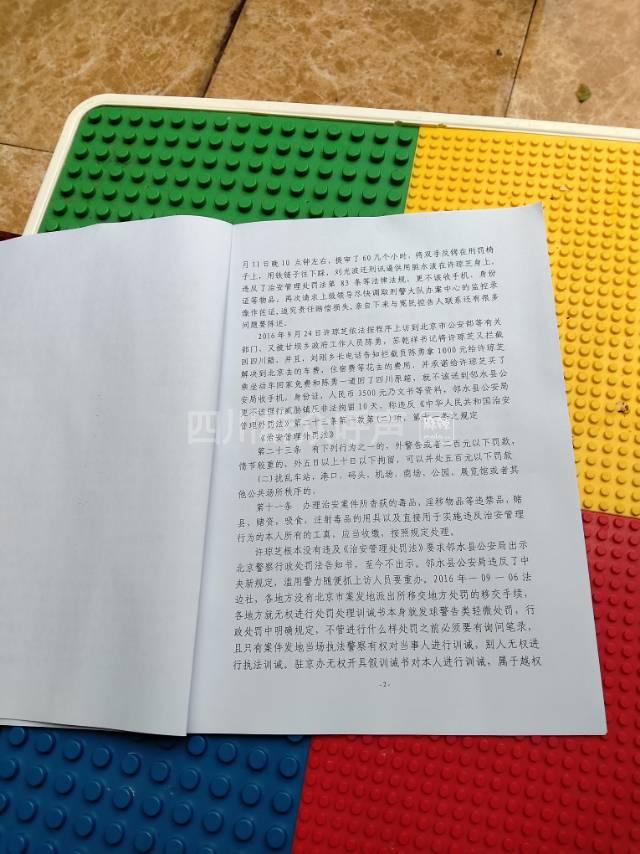 月11日晚10点钟左右，提审了60几个小时，将双手反铐在刑罚椅
子上，用铁链子往下踩，刘光波还刑讯逼供用脏水液在许琼芝身上，
违反了治安管理处罚法第 83 条等法律法规，更不该收手机、身份
证等物品，再次请求上级领导尽快调取刑警大队办案中心的监控录
像作佐证，追究责任赔偿损失，亲自下来与冤民控告人联系还有很多
问题要陈述。
2016年9月24日许琼芝依法按程序上访到北京市公安部等有关
部门，又被甘坝乡政府工作人员陈勇，苏乾祥书记将许琼芝又拦截
回四川籍，并且，刘刚乡长电话告知拦截员陈勇拿1000元给许琼芝
解决到北京去的车费，住宿费等花去的费用，并承诺给许琼芝买了
乘坐动车回家免费和陈勇一道回了四川原籍，就不该送到邻水县公
安局收手机，身份证，人民币3500元乃文书等资料，邻水县公安局
更不该强行威胁镇反非法拘留10天，称违反《中华人民共和国治安
管理处罚法》第二十三条第一款第(二)项，第十一条之规定
《治安管理处罚法》
第二十三条 有下列行为之一的，外警告或者二百元以下罚款，
情节较重的，外五日以上十日以下拘留，可以并处五百元以下罚款
(二)扰乱车站，港口、码头，机场，商场，公园、展览馆或者其
他公共场所秩序的。
第十一条 办理治安案件所查获的毒品，淫移物品等违禁品，赌
县，赌资，吸食，注射毒品的用具以及直接用于实施违反治安管理
行为的本人所有的工真，应当收缴，按照规定处理。
许琼芝根本没有违及《治安管理处罚法》要求邻水县公安局出示
北京警察行政处罚法告知书，至今不出示。邻水县公安局违反了中
央新规定，滥用警力随便抓上访人员要重办。2016年—09－06法
边社，各地方没有北京市案发地派出所移交地方处罚的移交手续，
各地方就无权进行处罚处理训诫书本身就发球警告类轻微处罚，行
政处罚中明确规定，不管进行什么样处罚之前必须要有询问笔录，
且只有案件发地当场执法警察有权对当事人进行训诫，别人无权进
行执法训诫，驻京办无权开具假训诫书对本人进行训诫，属于越权
-2-